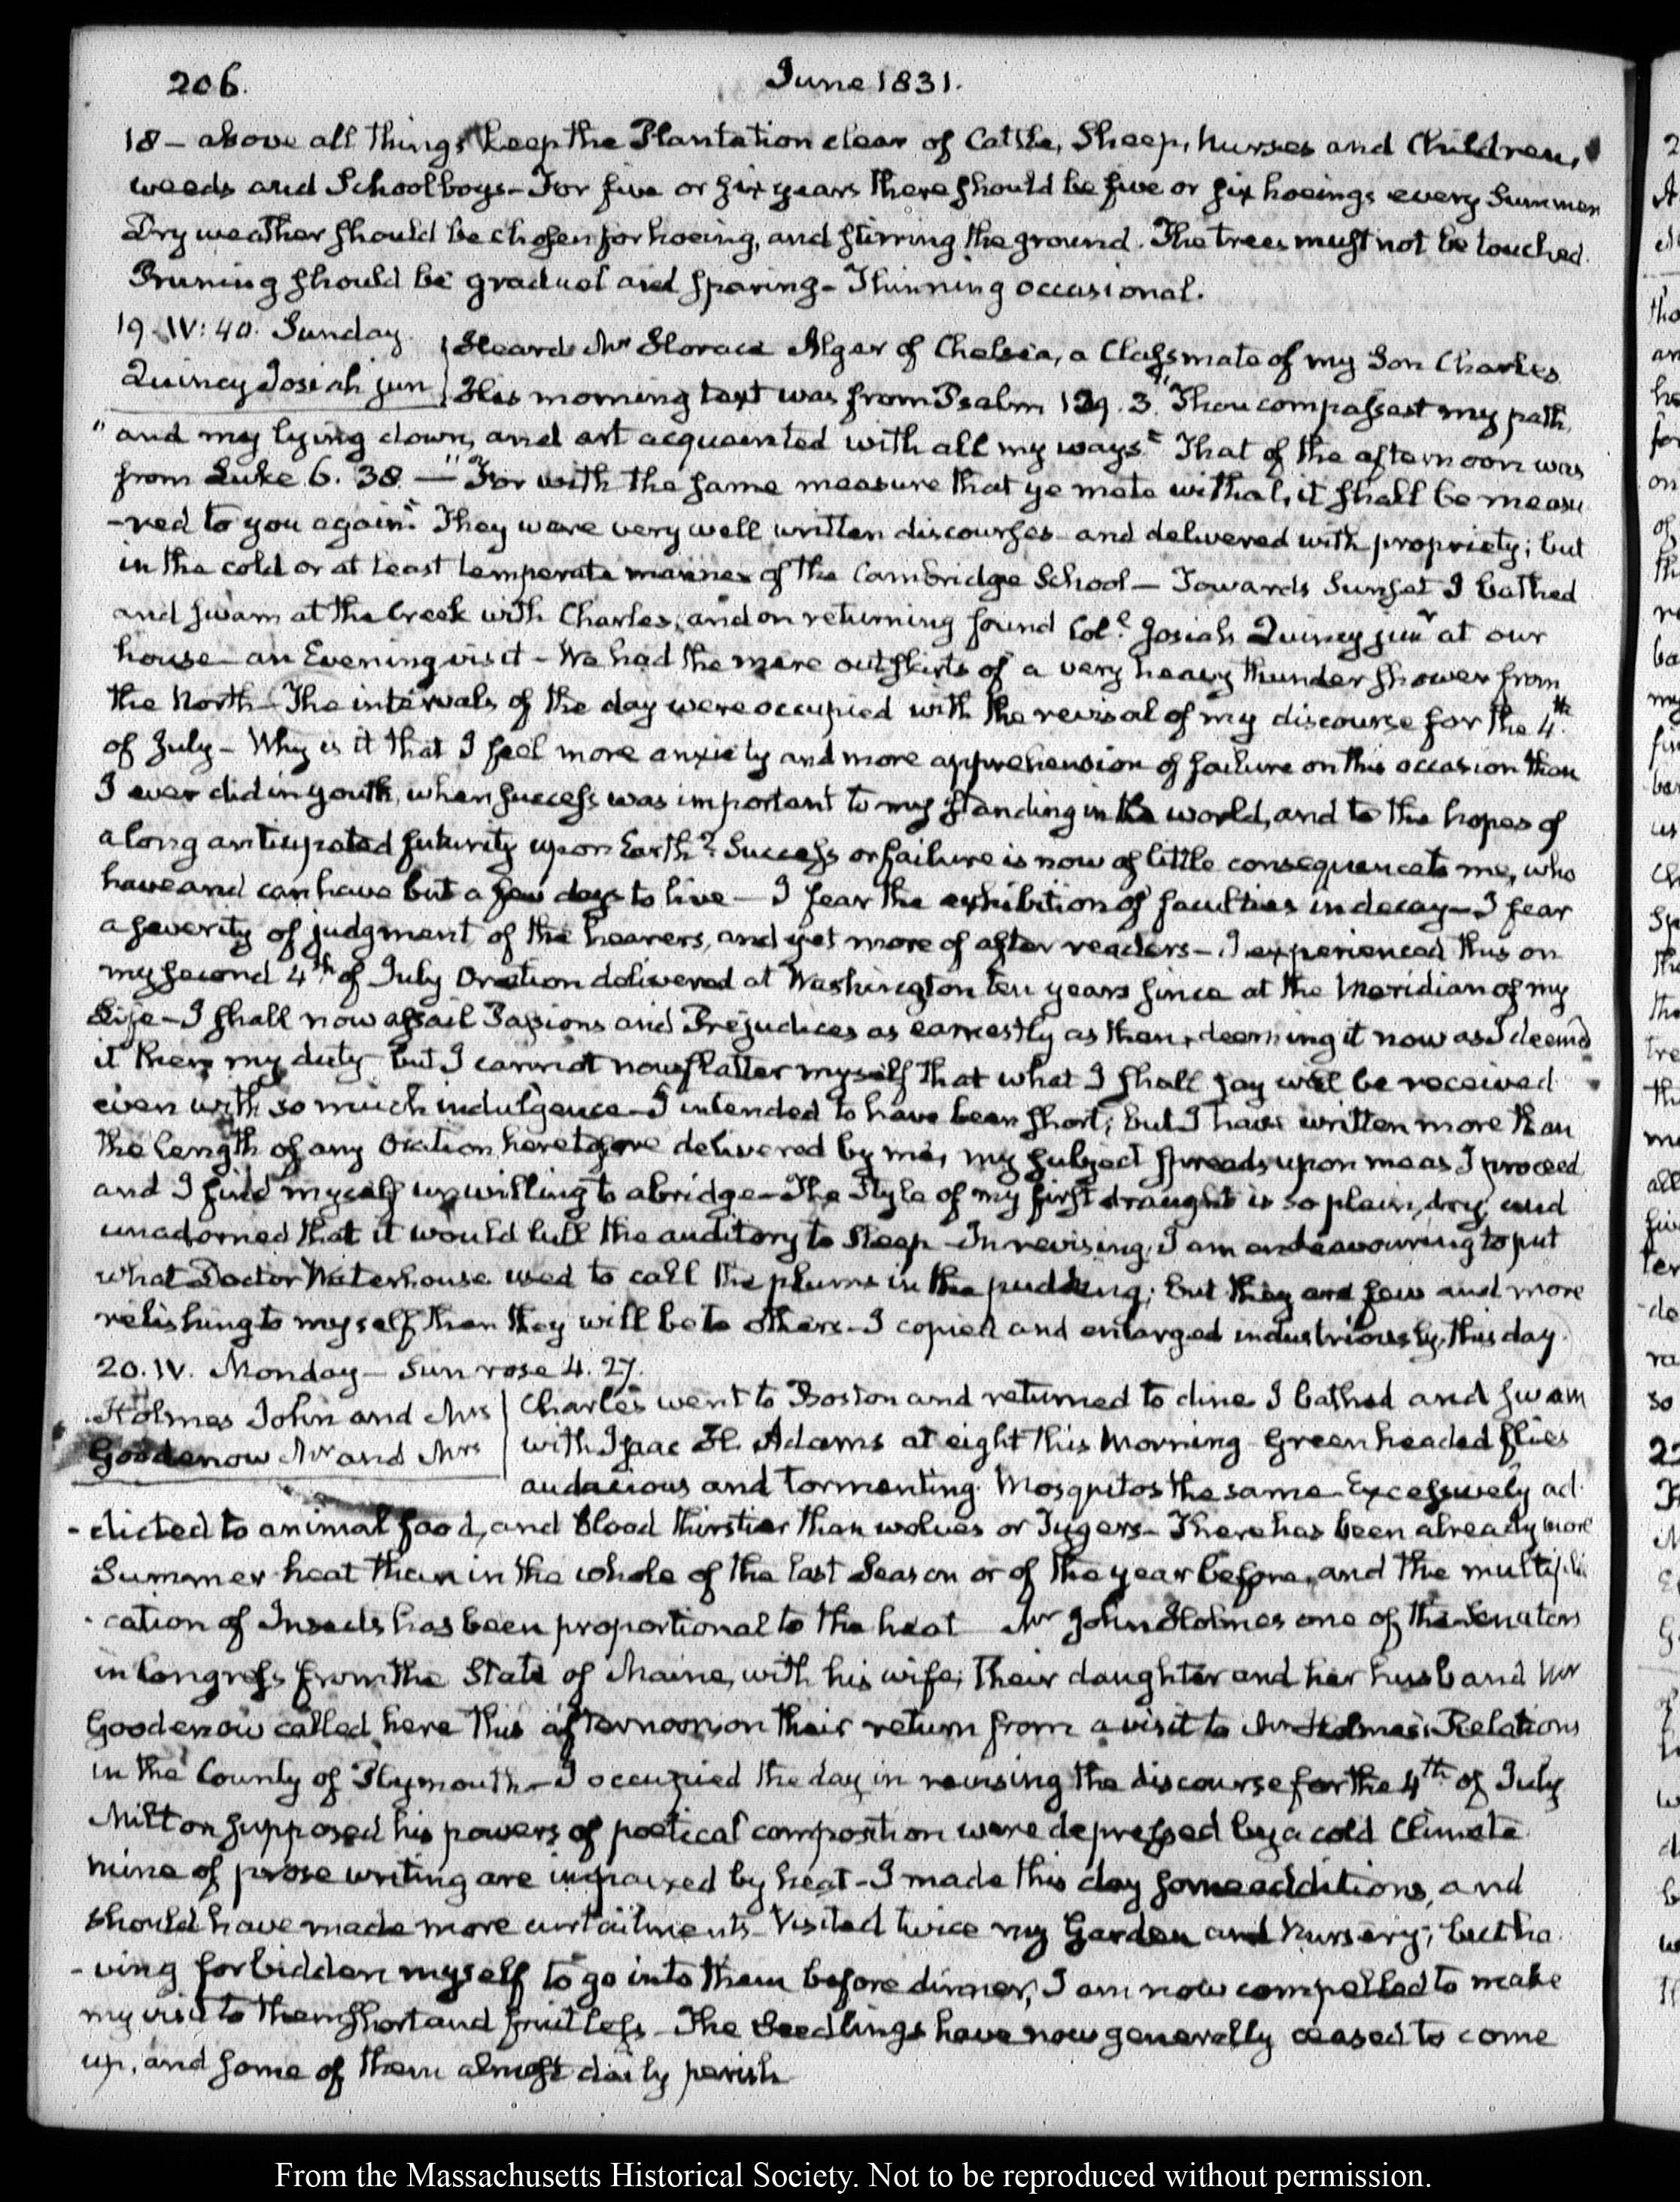 206.
June 1831.
18 – above all things keep the Plantation clear of Cattle, Sheep, Nurses and Children,
weeds and Schoolboys – For five or six years there should be five or six hoeings every Summer
Dry weather should be chosen for hoeing, and stirring the ground. The trees must not be touched.
Pruning should be gradual and sparing – Thinning occasional.
19. IV: 40. Sunday.
Quincy Josiah jun
Heard Mr Horace Alger of Chelsea, a Classmate of my Son Charles
His morning text was from Psalm 139. 3. "Thou compassest my path,
"and my lying down, and art acquainted with all my ways." That of the afternoon was
from Luke 6. 38. — "For with the same measure that ye mete withal, it shall be measu
-red to you again." They were very well written discourses and delivered with propriety; but
in the cold or at least temperate manner of the Cambridge School – Towards Sunset I bathed
and swam at the Creek with Charles, and on returning found Col.l Josiah Quincy junr at our
house – an Evening visit – We had the mere outskirts of a very heavy thunder shower from
the North – The intervals of the day were occupied with the revisal of my discourse for the 4.th
of July – Why is it that I feel more anxiety and more apprehension of failure on this occasion than
I ever did in youth, when success was important to my standing in the world, and to the hopes of
a long anticipated futurity upon Earth? Success or failure is now of little consequence to me, who
have and can have but a few days to live — I fear the exhibition of faculties in decay – I fear
a severity of judgment of the hearers, and yet more of after readers – I experienced this on
my second 4th of July Oration delivered at Washington ten years since at the Meridian of my
Life – I shall now assail Passions and Prejudices as earnestly as then, deeming it now as I deem'd
it then my duty – but I cannot now flatter myself that what I shall say will be received
even with so much indulgence – I intended to have been short; but I have written more than
the length of any Oration heretofore delivered by me, my subject spreads upon me as I proceed
and I find myself unwilling to abridge – The Style of my first draught is so plain, dry, and
unadorned that it would lull the auditory to Sleep – In revising, I am endeavouring to put
what Doctor Waterhouse used to call the plums in the pudding; but they are few and more
relishing to myself than they will be to others – I copied and enlarged industriously this day.
20. IV. Monday – Sun rose 4. 27.
Holmes John and Mrs
Goodenow Mr and Mrs
Charles went to Boston and returned to dine. I bathed and swam
with Isaac H. Adams at eight this Morning – Green headed flies
audacious and tormenting. Mosquitos the same – Excessively ad-
-dicted to animal food, and blood thirstier than wolves or Tygers – There has been already more
Summer heat than in the whole of the last Season or of the year before, and the multipli
-cation of Insects has been proportional to the heat – Mr John Holmes one of the Senators
in Congress from the State of Maine, with his wife, Their daughter and her husband Mr
Goodenow called here this afternoon on their return from a visit to Mr Holmes's Relations
in the County of Plymouth – I occupied the day in revising the discourse for the 4th of July
Milton supposed his powers of poetical composition were depressed by a cold Climate
mine of prose writing are impaired by heat – I made this day some additions, and
should have made more curtailments – Visited twice my Garden and Nursery; but ha
-ving forbidden myself to go into them before dinner, I am now compelled to make
my visit to them short and fruitless – The Seedlings have now generally ceased to come
up, and some of them almost daily perish
From the Massachusetts Historical Society. Not to be reproduced without permission.